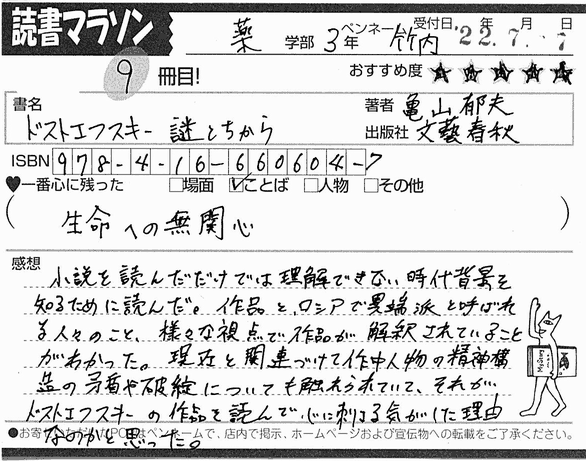 読書マラソン
薬 学部 3年 ペンネーム 竹内 受付日 '22年 7月 7日
9 冊目! おすすめ度 ★★★★★
書名 ドストエフスキー 謎とちから
著者 亀山郁夫
出版社 文藝春秋
ISBN 978-4-16-660604-7
♥一番心に残った □場面 ☑ことば □人物 □その他
(生命への無関心)
感想
小説を読んだだけでは理解できない時代背景を
知るために読んだ。作品と、ロシアで異端派と呼ばれ
る人々のこと、様々な視点で作品が解釈されていること
がわかった。現在と関連づけて作中人物の精神構
造の矛盾や破綻についても触れられていて、それが
ドストエフスキーの作品を読んで心に刺さる気がした理由
なのかと思った。
●お寄せいただいたPOPはペンネームで、店内で掲示、ホームページおよび宣伝物への転載をご了承ください。